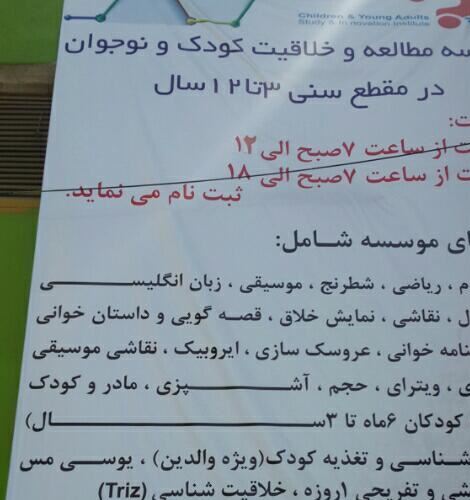 Children & Young Adults
Study & In novation Institute
مطالعه و خلاقیت کودک و نوجوان
در مقطع سنی ۳تا۱۲سال
از ساعت ۷صبح الی ۱۲
از ساعت ۷صبح الی ۱۸
ثبت نام می نماید.
موسسه شامل:
، ریاضی ، شطرنج ، موسیقی ، زبان انگلیسی
، نقاشی ، نمایش خلاق ، قصه گویی و داستان خوانی
نامه خوانی ، عروسک سازی ، ایروبیک ، نقاشی موسیقی
، ویترای ، حجم ، آشپزی ، مادر و کودک
کودکان ۶ماه تا ۳سال)
و تغذیه کودک(ویژه والدین) ، یوسی مس
و تفریحی ۱روزه ، خلاقیت شناسی (Triz)